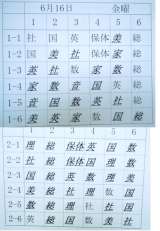 6月16日 金曜
1 2 3 4 5 6
1-1 社 国 英 保体 美 総
1-2 国 美 社 保体 家 総
1-3 英 社 数 家 数 総
1-4 家 数 音 国 英 総
1-5 音 国 数 英 社 総
1-6 美 英 家 数 国 総
1 2 3 4 5 6
2-1 理 総 保体 英 国 数
2-2 社 総 保体 国 理 数
2-3 国 総 英 数 理 美
2-4 美 総 社 理 数 国
2-5 数 総 理 社 社 国
2-6 英 総 国 数 美 社